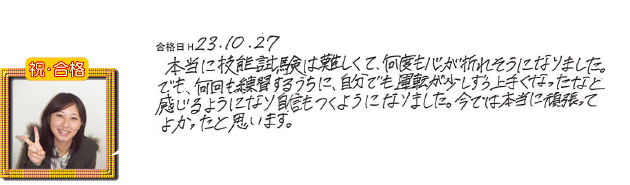 祝・合格
合格日 H23.10.27
本当に技能試験は難しくて、何度も心が折れそうになりました。
でも、何回も練習するうちに、自分でも運転が少しずつ上手くなったなと
感じるようになり自信もつくようになりました。今では本当に頑張って
よかったと思います。